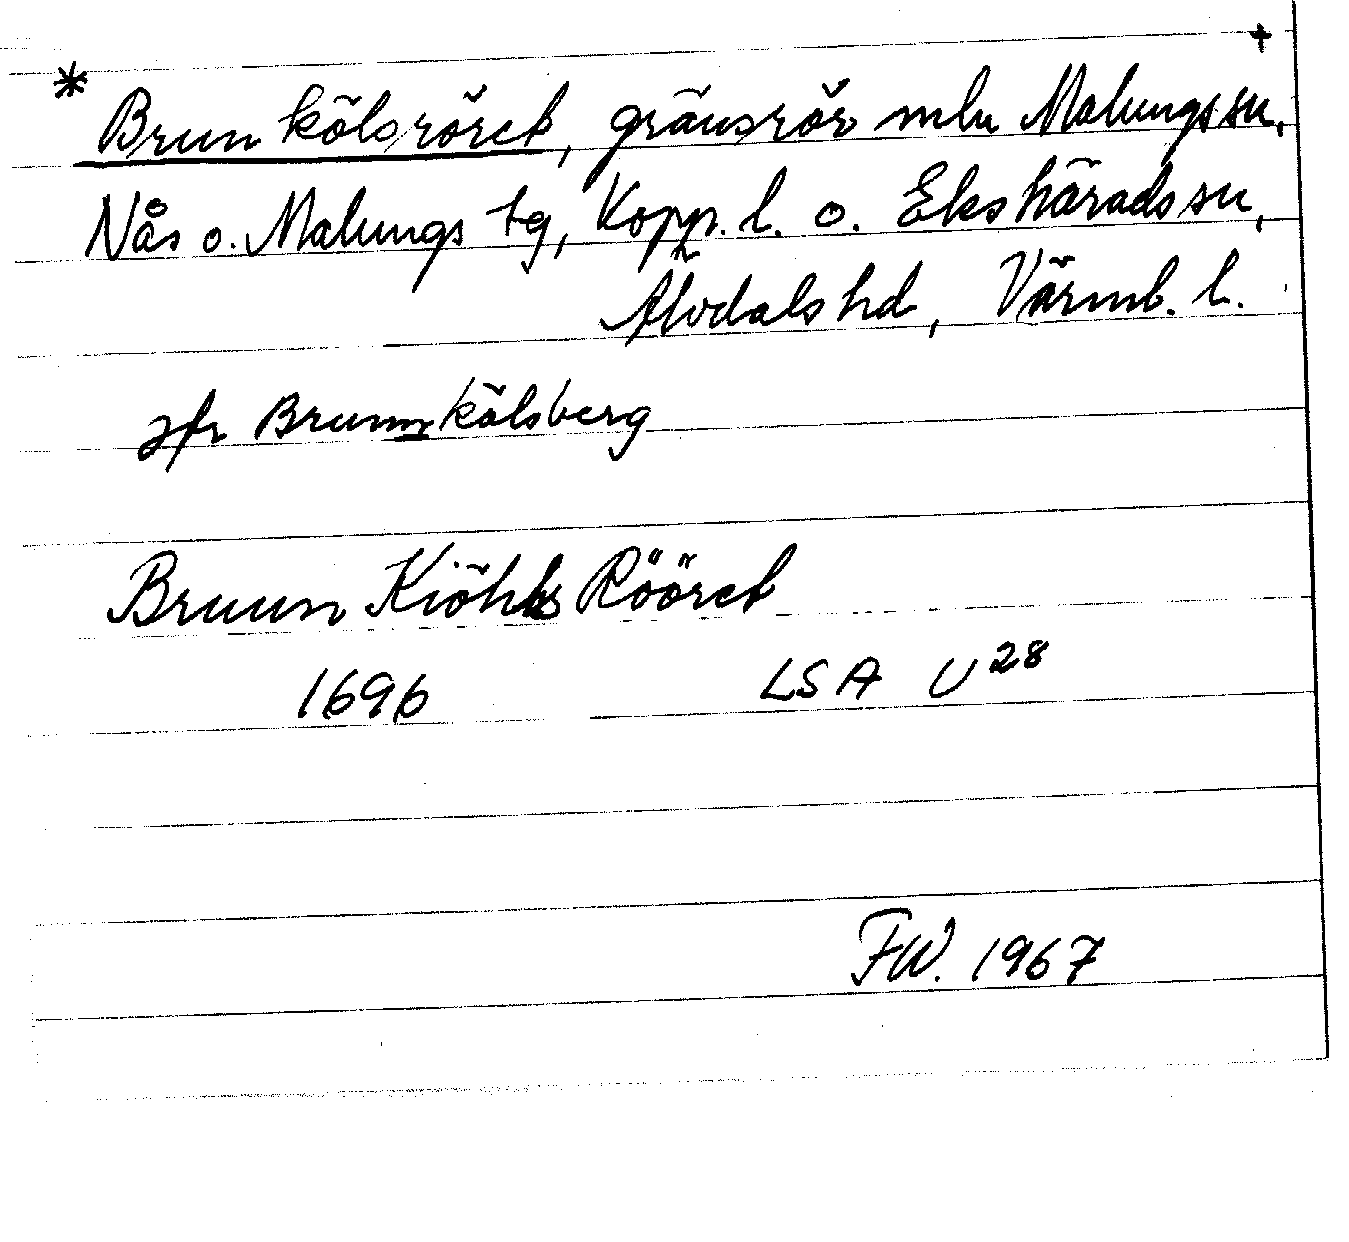 * Brunkölsröret, gränsrör mln Malungs sn, +
Nås o. Malungs tg, Kopp. l. o. Ekshärads sn,
Älvdals hd, Värml. l.
jfr Brunnkölsberg
Bruun Kiöhls Rööret
1696 LSA U28
FW. 1967